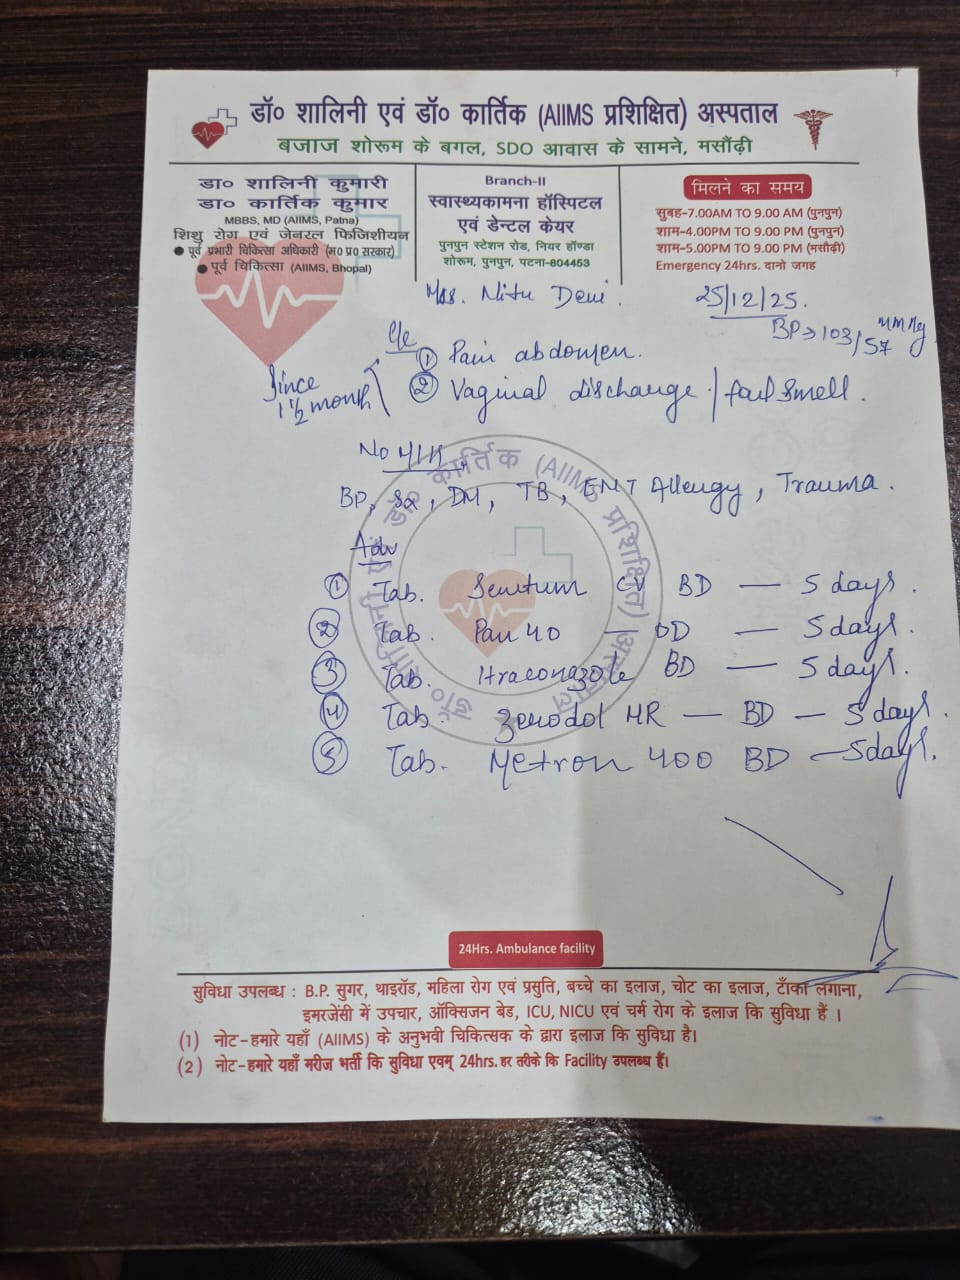 डॉ० शालिनी एवं डॉ० कार्तिक (AIIMS प्रशिक्षित) अस्पताल
बजाज शोरूम के बगल, SDO आवास के सामने, मसौंढ़ी
डा० शालिनी कुमारी
डा० कार्तिक कुमार
MBBS, MD (AIIMS, Patna)
शिशु रोग एवं जेनरल फिजिशीयन
● पूर्व प्रभारी चिकित्सा अधिकारी (म० प्र० सरकार)
● पूर्व चिकित्सा (AIIMS, Bhopal)
Branch-II
स्वास्थ्यकामना हॉस्पिटल
एवं डेन्टल केयर
पुनपुन स्टेशन रोड, नियर हॉण्डा
शोरूम, पुनपुन, पटना-804453
मिलने का समय
सुबह-7.00AM TO 9.00 AM (पुनपुन)
शाम-4.00PM TO 9.00 PM (पुनपुन)
शाम-5.00PM TO 9.00 PM (मसौढ़ी)
Emergency 24hrs. दानो जगह
Mrs. Nitu Devi.
25/12/25.
BP→103/57 mmHg
C/c
① Pain abdomen.
② Vaginal discharge / foul smell.
Since
1½ month
No H/K
BP, DM, TB, ENT Allergy, Trauma.
Adv
① Tab. CV BD — 5 days.
② Tab. Pan 40 — OD — 5 days.
③ Tab. Itraconazole BD — 5 days.
④ Tab. Zerodol MR — BD — 5 days.
⑤ Tab. Metron 400 BD — 5 days.
डॉ० शालिनी एवं डॉ० कार्तिक (AIIMS प्रशिक्षित) अस्पताल
24Hrs. Ambulance facility
सुविधा उपलब्ध : B.P. सुगर, थाइरॉड, महिला रोग एवं प्रसुति, बच्चे का इलाज, चोट का इलाज, टाँका लगाना,
इमरजेंसी में उपचार, ऑक्सिजन बेड, ICU, NICU एवं चर्म रोग के इलाज कि सुविधा हैं ।
(1) नोट-हमारे यहाँ (AIIMS) के अनुभवी चिकित्सक के द्वारा इलाज कि सुविधा है।
(2) नोट-हमारे यहाँ मरीज भर्ती कि सुविधा एवम् 24hrs. हर तरीके कि Facility उपलब्ध हैं।